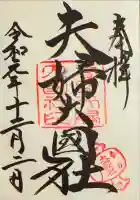 奉拝
夫婦大國社
令和元年十二月二日